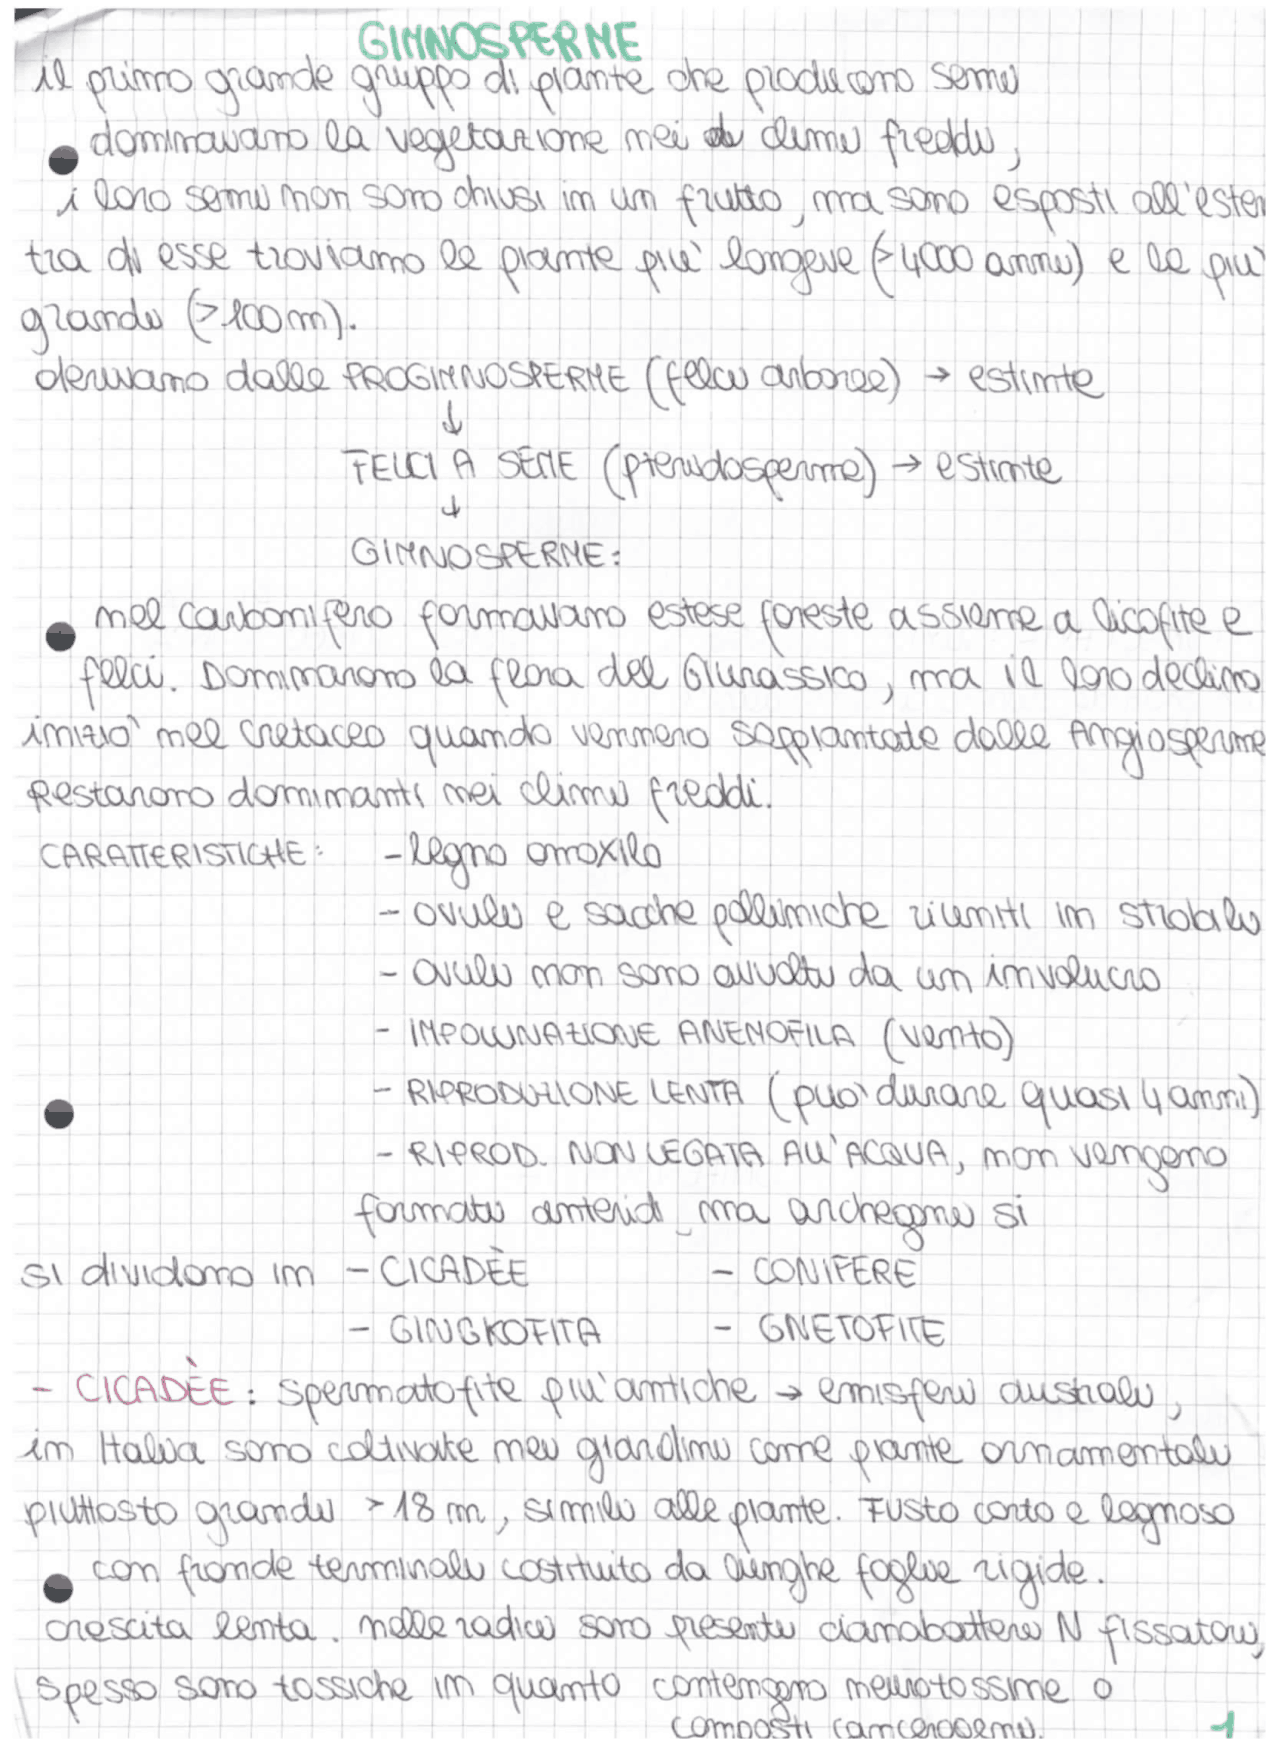 GIMNOSPERME
il primo grande gruppo di piante che producono semi
dominavano la vegetazione nei climi freddi,
i loro semi non sono chiusi in un frutto, ma sono esposti all'ester
tra di esse troviamo le piante più longeve (>4000 anni) e le più
grandi (>100 m).
derivano dalle PROGIMNOSPERME (felci arboree) → estinte
↓
FELCI A SEME (pteridosperme) → estinte
↓
GIMNOSPERME:
nel Carbonifero formavano estese foreste assieme a licofite e
felci. Dominarono la flora del Giurassico, ma il loro declino
iniziò nel Cretaceo quando vennero soppiantate dalle Angiosperme
Restarono dominanti nei climi freddi.
CARATTERISTICHE: - legno omoxilo
- ovuli e sacche polliniche riuniti in strobili
- ovuli non sono avvolti da un involucro
- IMPOLLINAZIONE ANEMOFILA (vento)
- RIPRODUZIONE LENTA (può durare quasi 4 anni)
- RIPROD. NON LEGATA ALL'ACQUA, non vengono
formati anteridi ma archegoni si
si dividono in - CICADÈE - CONIFERE
- GINGKOFITA - GNETOFITE
- CICADÈE: spermatofite più antiche → emisferi australi,
in Italia sono coltivate nei giardini come piante ornamentali
piuttosto grandi >18 m, simili alle piante. Fusto corto e legnoso
con fronde terminali costituito da lunghe foglie rigide.
crescita lenta. nelle radici sono presenti cianobatteri N fissatori,
spesso sono tossiche in quanto contengono neurotossine o
composti cancerogeni.
1